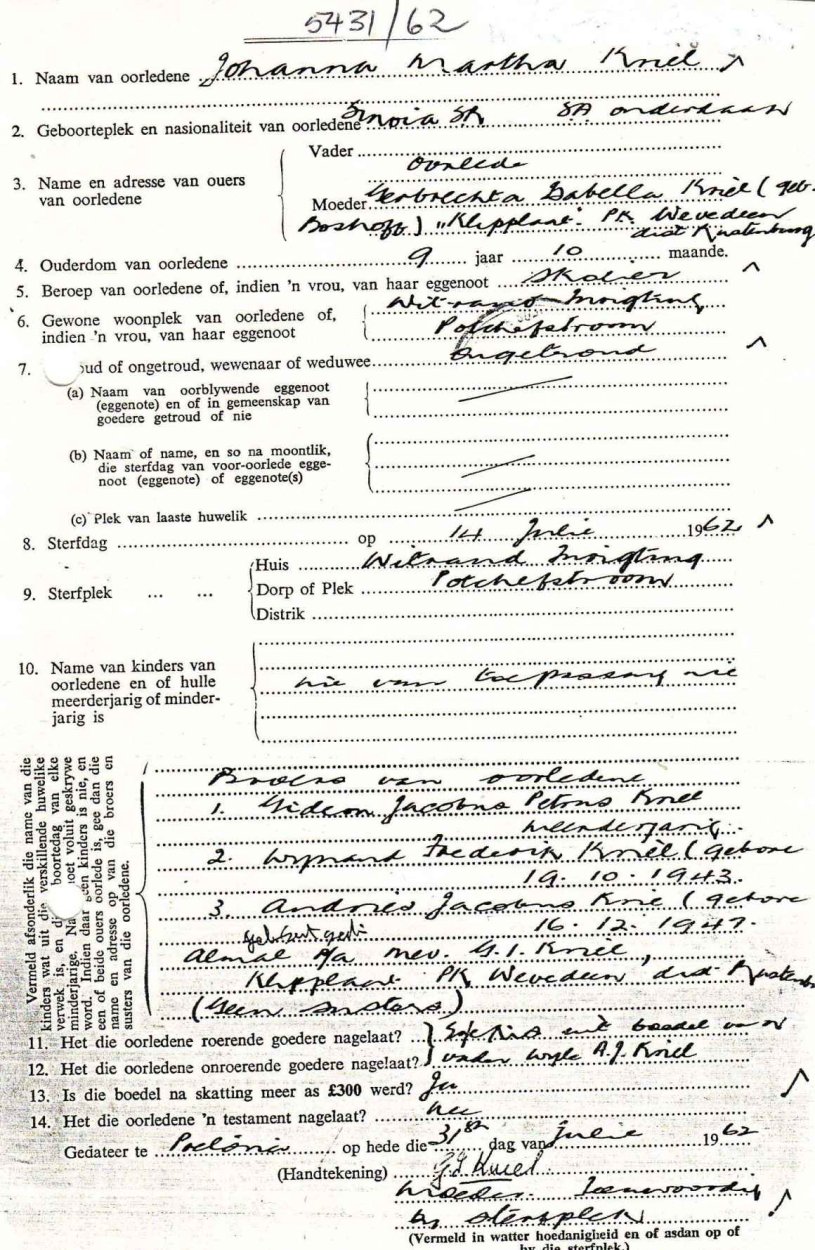 5431/62
1. Naam van oorledene Johanna Martha Kniel
2. Geboorteplek en nasionaliteit van oorledene Sinoia SR SA onderdaan
3. Name en adresse van ouers van oorledene
Vader oorlede
Moeder Gerbrechta Isabella Kniel (geb.
Boshoff) "Klipplaat" PK Wevedeen
dist Rustenburg
4. Ouderdom van oorledene 9 jaar 10 maande.
5. Beroep van oorledene of, indien 'n vrou, van haar eggenoot Skolier
6. Gewone woonplek van oorledene of, indien 'n vrou, van haar eggenoot
Witrand Inrigting
Potchefstroom
7. oud of ongetroud, wewenaar of weduwee ongetroud
(a) Naam van oorblywende eggenoot
(eggenote) en of in gemeenskap van
goedere getroud of nie
(b) Naam of name, en so na moontlik,
die sterfdag van voor-oorlede egge-
noot (eggenote) of eggenote(s)
(c) Plek van laaste huwelik
8. Sterfdag op 14 Julie 1962
9. Sterfplek ... ...
Huis Witrand Inrigting
Dorp of Plek Potchefstroom
Distrik
10. Name van kinders van
oorledene en of hulle
meerderjarig of minder-
jarig is
nie van toepassing nie
Vermeld afsonderlik die name van die
kinders wat uit die verskillende huwelike
verwek is, en di boortedag van elke
minderjarige. Na moet voluit geskrywe
word. Indien daar geen kinders is nie, en
een of beide ouers oorlede is, gee dan die
name en adresse op van die broers en
susters van die oorledene.
Broers van oorledene
1. Gideon Jacobus Petrus Kniel
meerderjarig
2. Wynand Frederik Kniel (gebore
19.10.1943.
3. Andries Jacobus Kniel (gebore
16.12.1947.
Almal p/a Mev. G.I. Kniel,
Klipplaat PK Wevedeen dist Rustenb
(Geen susters)
11. Het die oorledene roerende goedere nagelaat?
12. Het die oorledene onroerende goedere nagelaat?
uit boedel van
vader wyle A.J. Kniel
13. Is die boedel na skatting meer as £300 werd? Ja
14. Het die oorledene 'n testament nagelaat? Nee
Gedateer te op hede die 31ste dag van Julie 1962
(Handtekening) G I Kniel
Moeder. Teenwoordig
by sterfplek
(Vermeld in watter hoedanigheid en of asdan op of
by die sterfplek.)